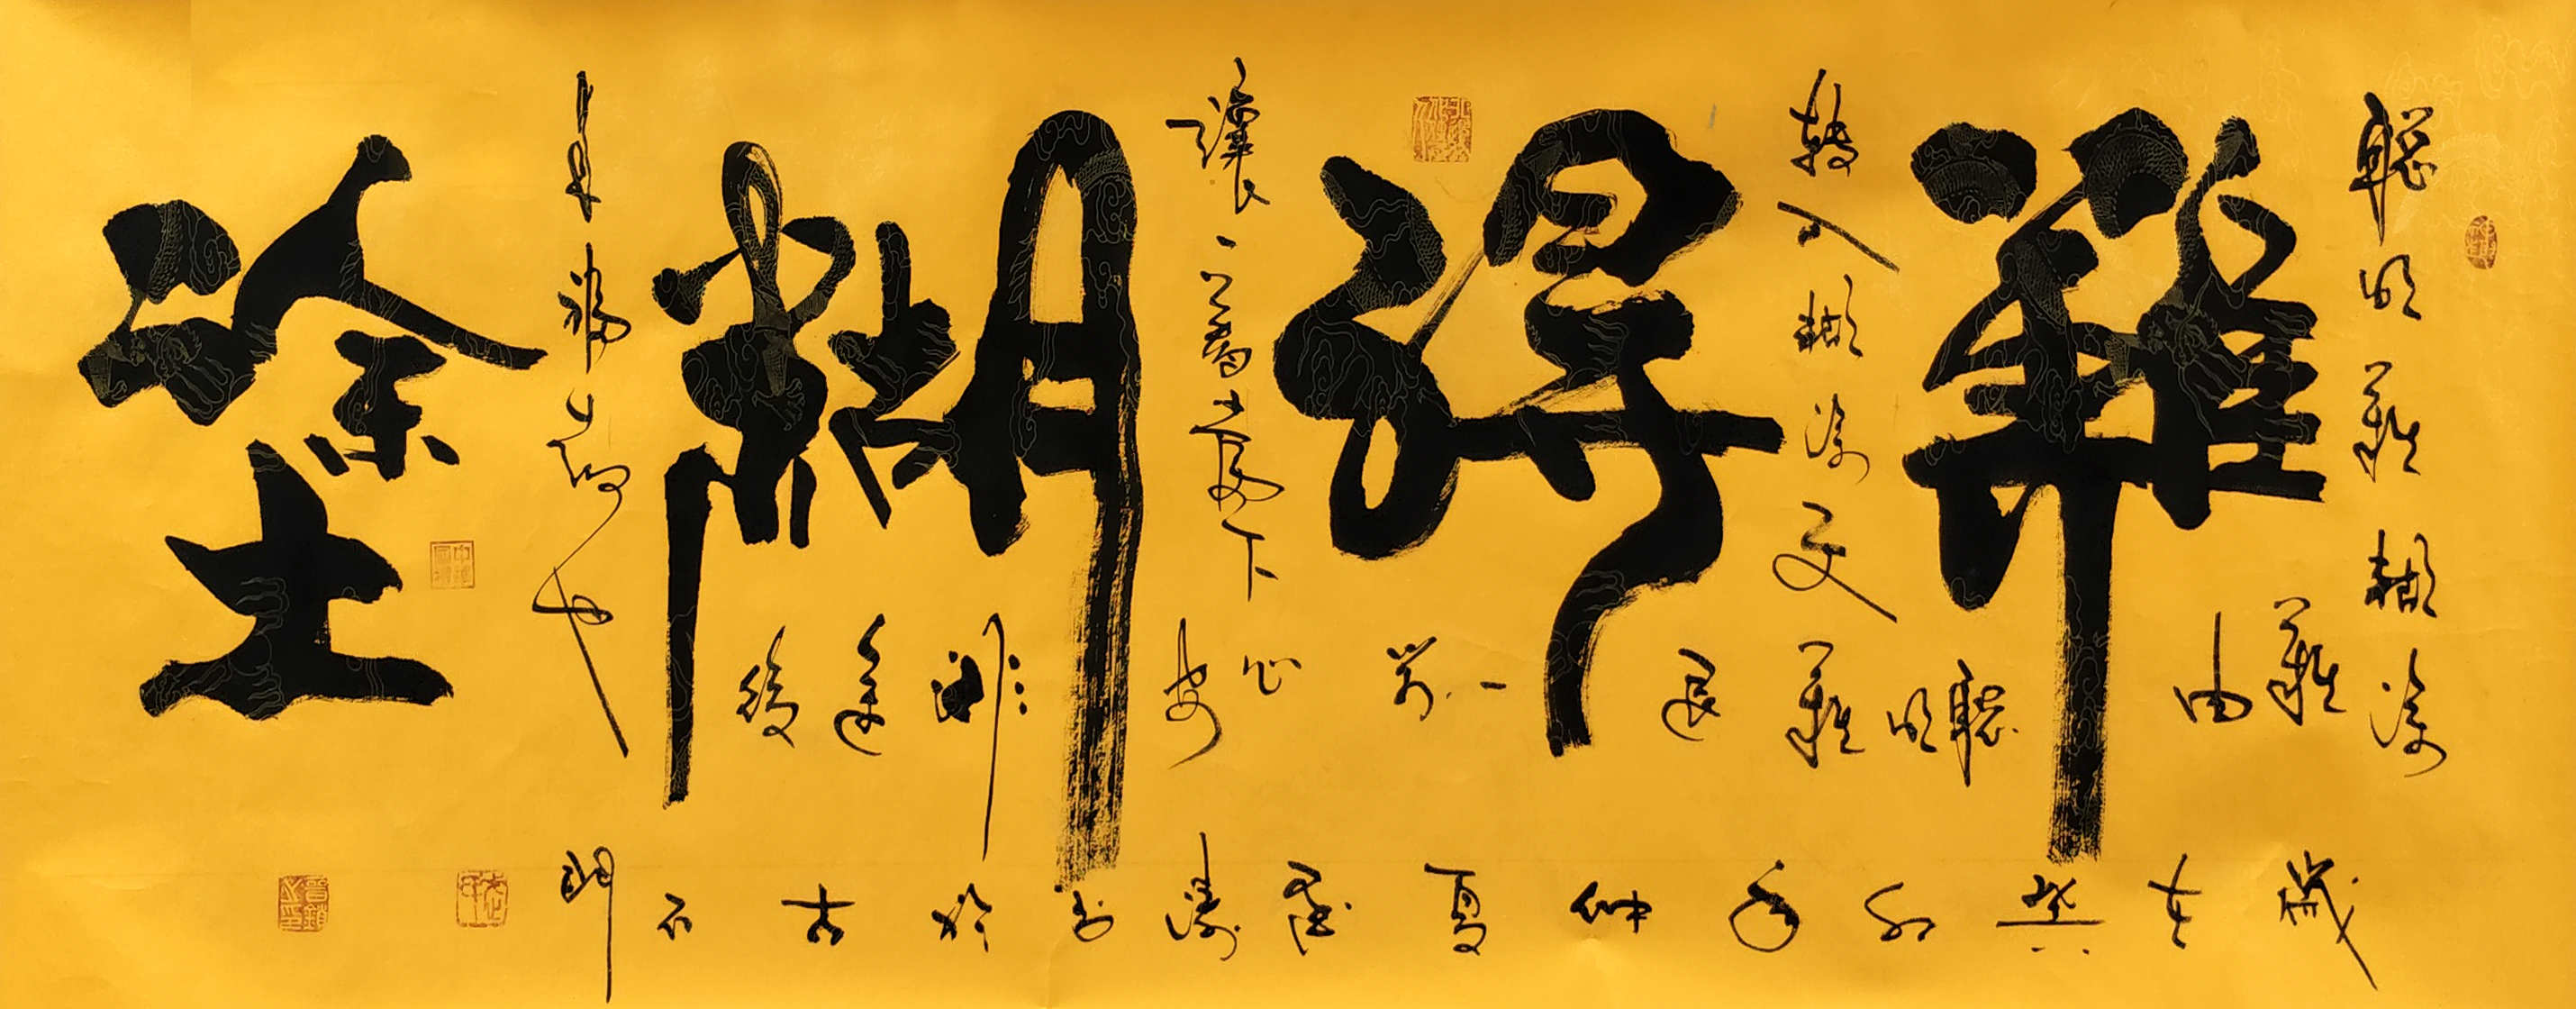 難得糊塗
聰明難糊塗
難由
聰明
轉入糊塗更難
退一步
讓一著當下心
安
非 後
來福報也
歲在癸卯年仲夏 濤書於古石門